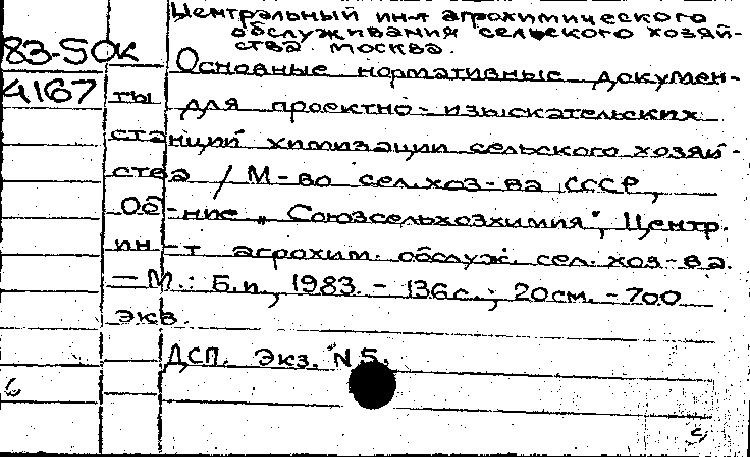 Центральный ин-т агрохимического
обслуживания сельского хозяй-
ства. Москва.
83-5ОК
4167
Основные нормативные докумен-
ты для проектно-изыскательских
станций химизации сельского хозяй-
ства / М-во сел. хоз-ва СССР,
Об-ние „Союзсельхозхимия", Центр.
ин-т агрохим. обслуж. сел. хоз-ва.
— М.: Б.и., 1983. - 136с.; 20см. - 700
экз.
ДСП. Экз. N 5.
6